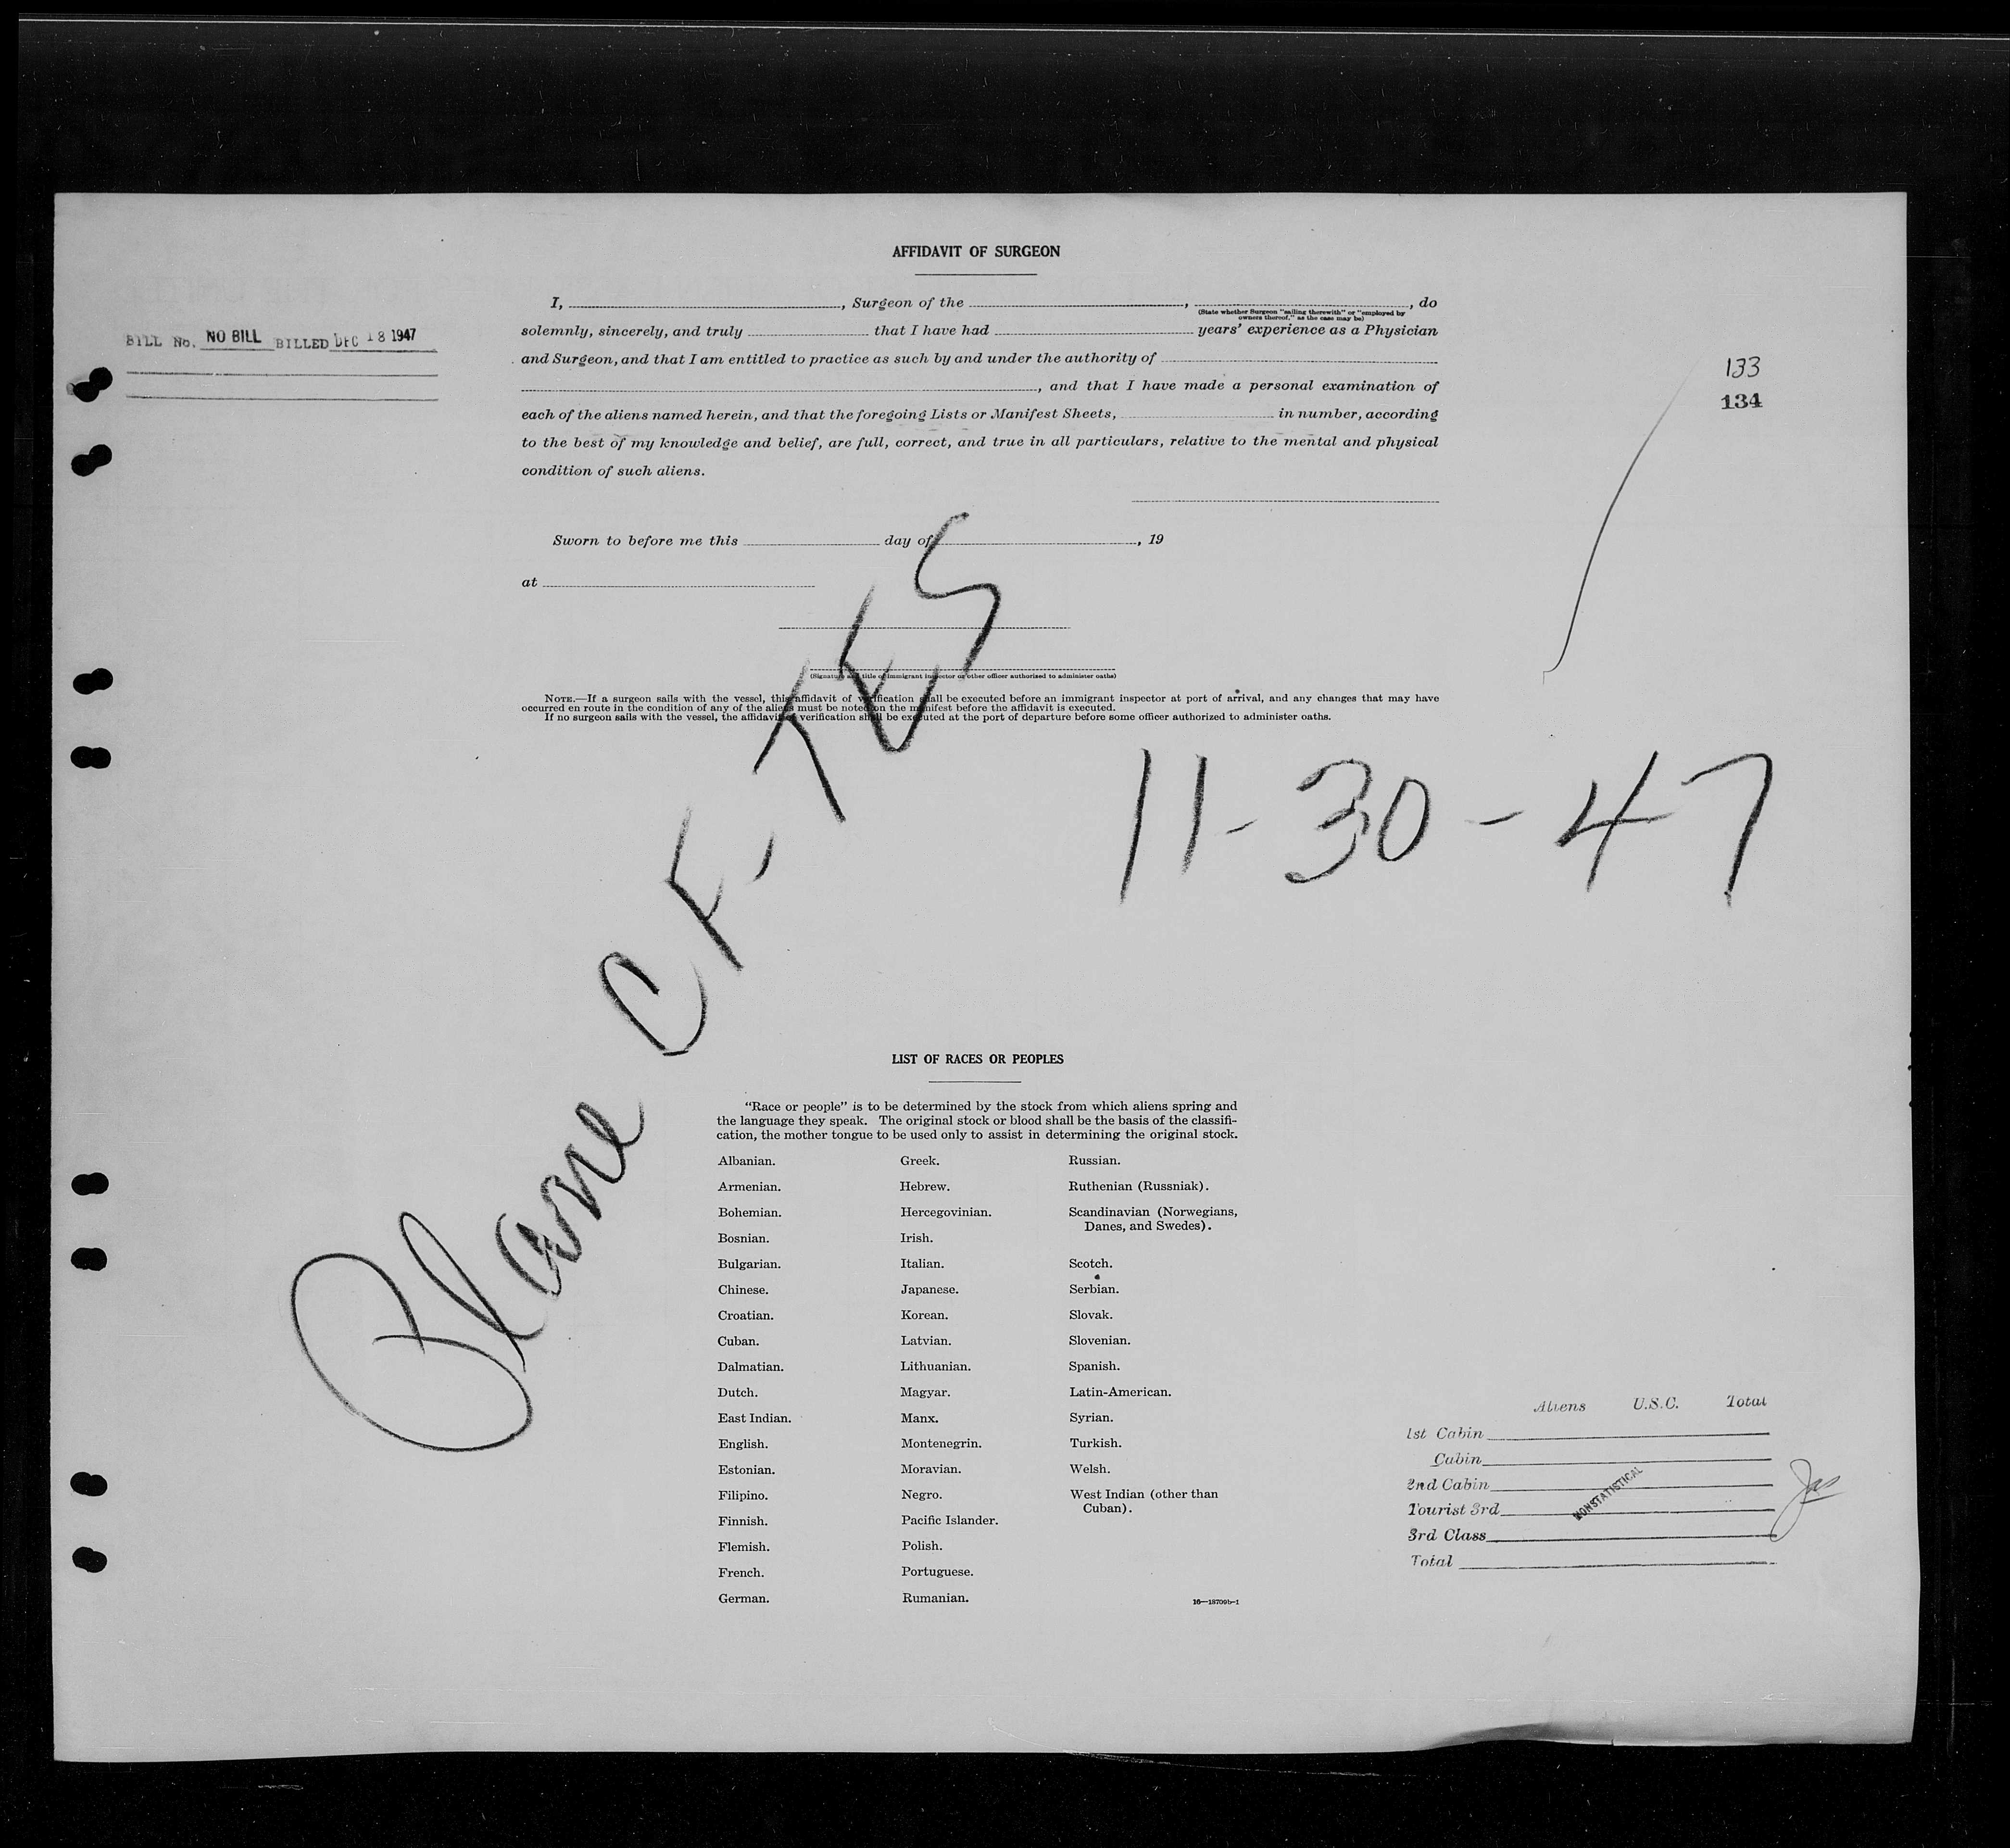 AFFIDAVIT OF SURGEON
I, , Surgeon of the , , do
(State whether Surgeon "sailing therewith" or "employed by
owners thereof," as the case may be)
BILL No. NO BILL BILLED DEC 18 1947
solemnly, sincerely, and truly that I have had years' experience as a Physician
and Surgeon, and that I am entitled to practice as such by and under the authority of
, and that I have made a personal examination of
each of the aliens named herein, and that the foregoing Lists or Manifest Sheets, in number, according
to the best of my knowledge and belief, are full, correct, and true in all particulars, relative to the mental and physical
condition of such aliens.
133
134
Sworn to before me this day of , 19
at
(Signature and title of immigrant inspector or other officer authorized to administer oaths)
NOTE.—If a surgeon sails with the vessel, this affidavit of verification shall be executed before an immigrant inspector at port of arrival, and any changes that may have
occurred en route in the condition of any of the aliens must be noted on the manifest before the affidavit is executed.
If no surgeon sails with the vessel, the affidavit of verification shall be executed at the port of departure before some officer authorized to administer oaths.
CF-TES
11-30-47
LIST OF RACES OR PEOPLES
"Race or people" is to be determined by the stock from which aliens spring and
the language they speak. The original stock or blood shall be the basis of the classifi-
cation, the mother tongue to be used only to assist in determining the original stock.
Albanian.
Armenian.
Bohemian.
Bosnian.
Bulgarian.
Chinese.
Croatian.
Cuban.
Dalmatian.
Dutch.
East Indian.
English.
Estonian.
Filipino.
Finnish.
Flemish.
French.
German.
Greek.
Hebrew.
Hercegovinian.
Irish.
Italian.
Japanese.
Korean.
Latvian.
Lithuanian.
Magyar.
Manx.
Montenegrin.
Moravian.
Negro.
Pacific Islander.
Polish.
Portuguese.
Rumanian.
Russian.
Ruthenian (Russniak).
Scandinavian (Norwegians,
Danes, and Swedes).
Scotch.
Serbian.
Slovak.
Slovenian.
Spanish.
Latin-American.
Syrian.
Turkish.
Welsh.
West Indian (other than
Cuban).
16—18709b-1
Aliens U.S.C. Total
1st Cabin
Cabin
2nd Cabin
Tourist 3rd
3rd Class
Total
NONSTATISTICAL